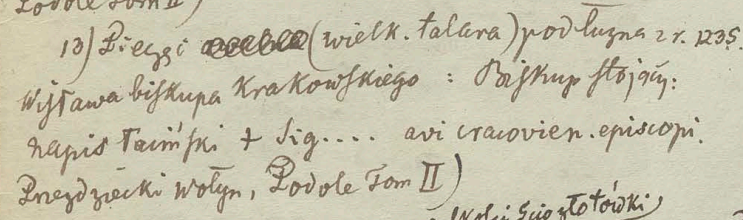 Podole Tom II)
13) Pieczęć (wielk. talara) podłużna z r. 1235.
Wisława biskupa Krakowskiego : Biskup stojący:
napis łaciński + Sig.... avi cracovien. episcopi.
Przezdziecki Wołyn, Podole Tom II)